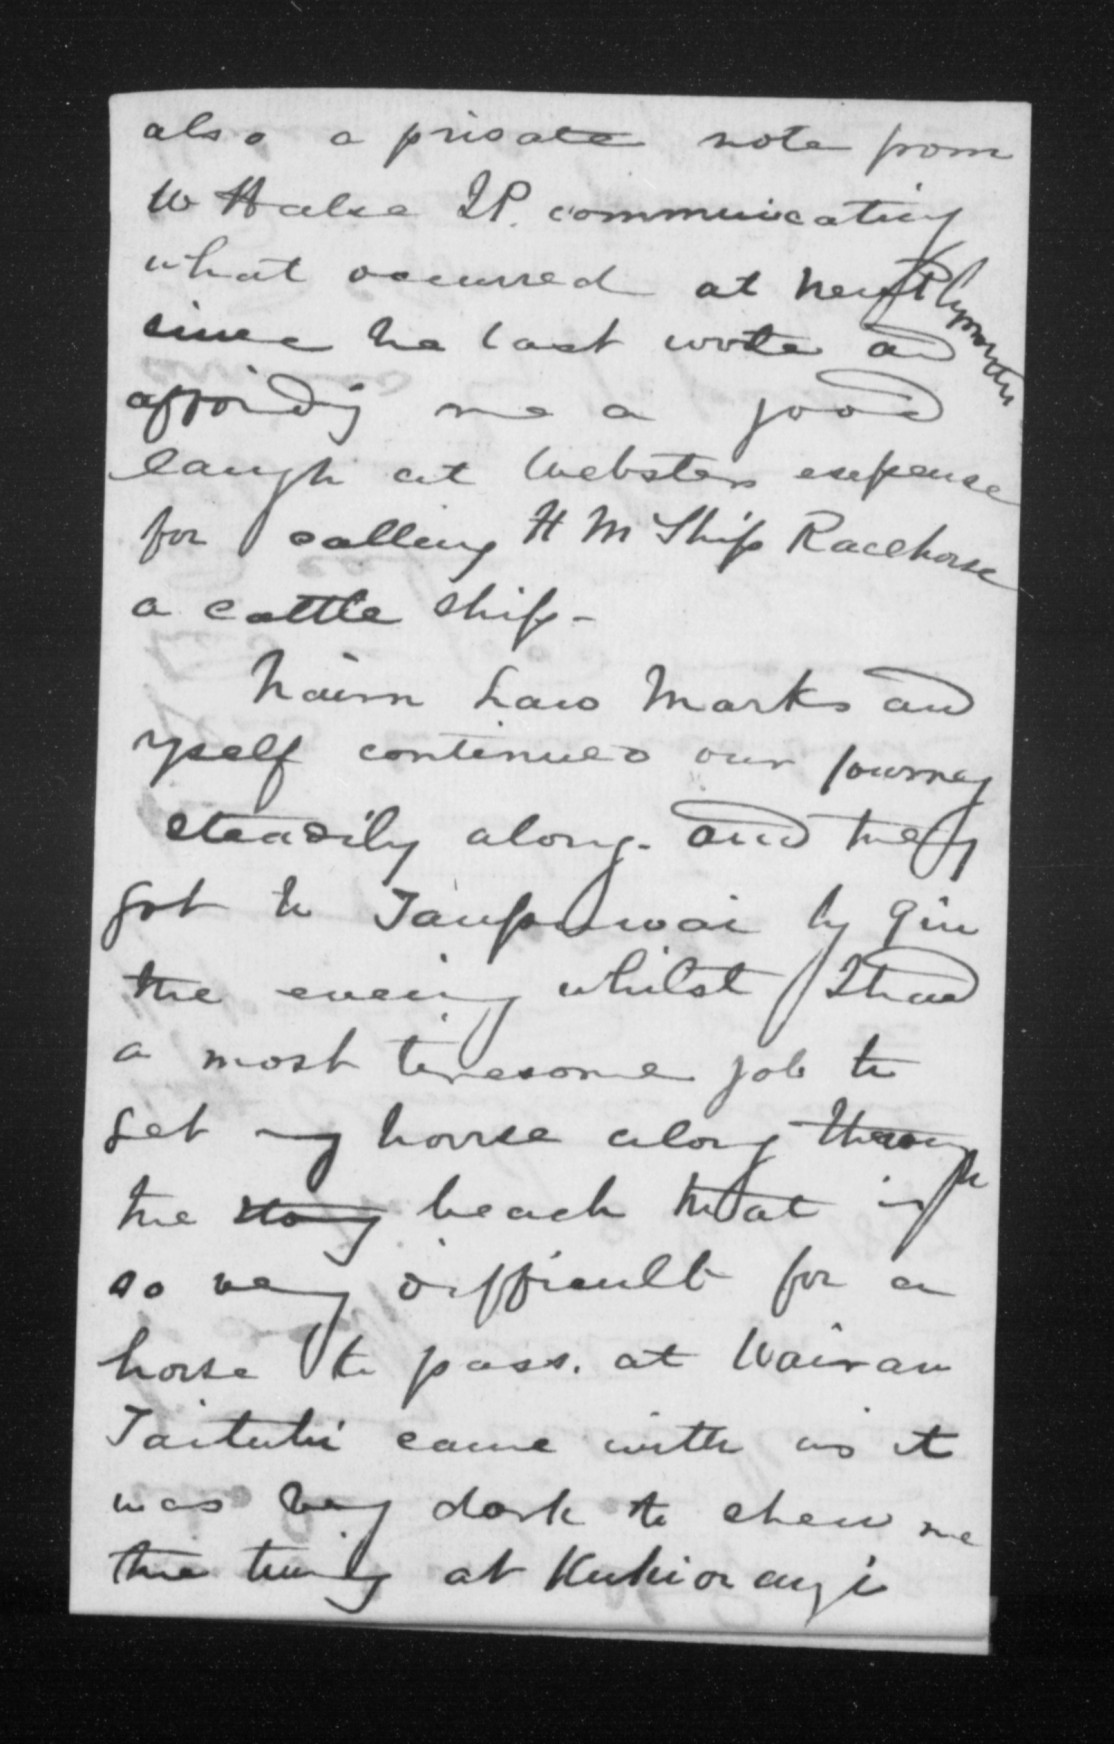 also a private note from
W Halse J.P. communicating
what occurred at New Plymouth
since he last wrote and
affording me a good
laugh at Websters expense
for calling H M Ship Racehorse
a cattle ship -
Nairn Law Marks and
myself continued our journey
steadily along. and they
got to Taupowai by 9 in
the evening whilst I had
a most tiresome job to
get my horse along through
the stony beach that is
so very difficult for a
horse to pass. at Wairau
Taituhi came with us it
was very dark to shew me
the turning at Kukiorangi